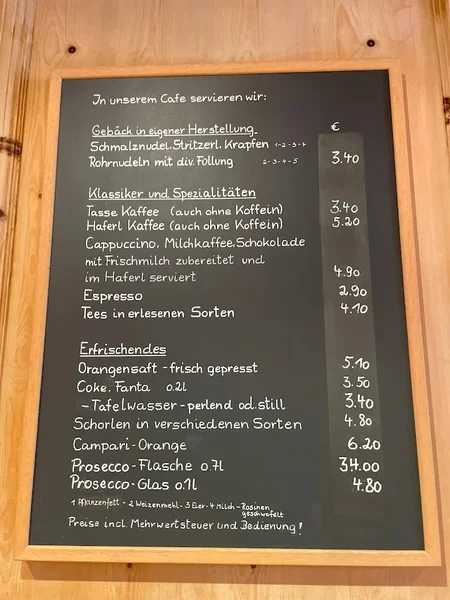 In unserem Cafe servieren wir:
Gebäck in eigener Herstellung €
Schmalznudel.Stritzerl. Krapfen 1-2-3-4
Rohrnudeln mit div. Füllung 2-3-4-5 3.40
Klassiker und Spezialitäten
Tasse Kaffee (auch ohne Koffein) 3.40
Haferl Kaffee (auch ohne Koffein) 5.20
Cappuccino. Milchkaffee.Schokolade
mit Frischmilch zubereitet und
im Haferl serviert 4.90
Espresso 2.90
Tees in erlesenen Sorten 4.10
Erfrischendes
Orangensaft - frisch gepresst 5.10
Coke. Fanta 0.2l 3.50
- Tafelwasser - perlend od. still 3.40
Schorlen in verschiedenen Sorten 4.80
Campari-Orange 6.20
Prosecco-Flasche 0.7l 34.00
Prosecco-Glas 0.1l 4.80
1 Pflanzenfett - 2 Weizenmehl - 3 Eier - 4 Milch - Rosinen
geschwefelt
Preise incl. Mehrwertsteuer und Bedienung!